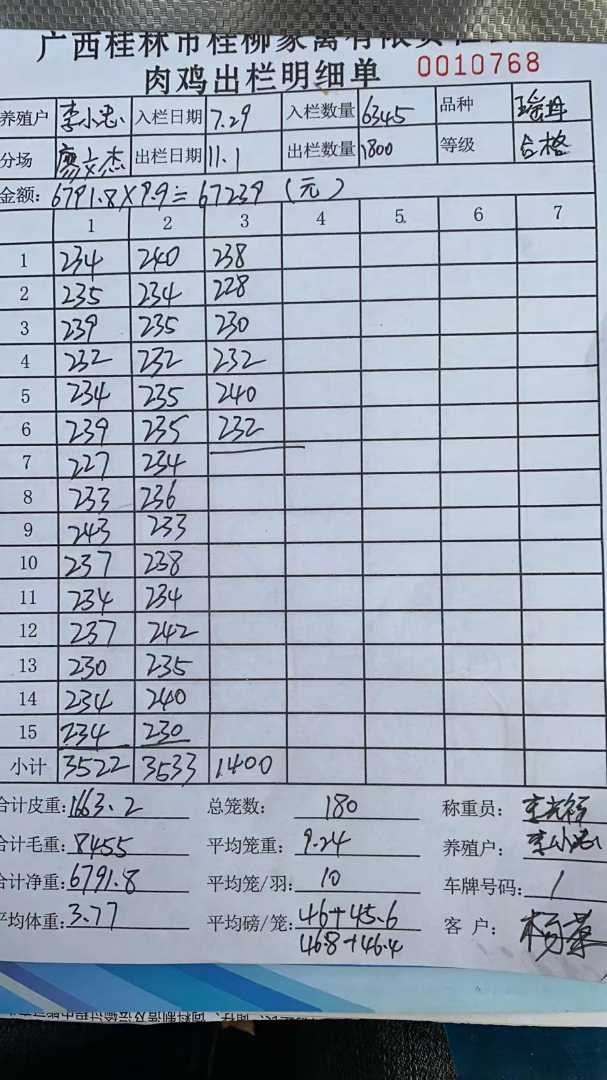 广西桂林市桂柳家禽有限责任公司
肉鸡出栏明细单 0010768
养殖户 李小忠 入栏日期 7.29 入栏数量 6345 品种 瑶鸡
分场 廖文杰 出栏日期 11.1 出栏数量 1800 等级 合格
金额: 6791.8×9.9=67239 (元)
1 2 3 4 5 6 7
1 234 240 238
2 235 234 228
3 239 235 230
4 232 232 232
5 234 235 240
6 239 235 232
7 227 234
8 233 236
9 243 233
10 237 238
11 234 234
12 237 242
13 230 235
14 234 240
15 234 230
小计 3522 3533 1400
合计皮重: 1663.2 总笼数: 180 称重员:
合计毛重: 8455 平均笼重: 9.24 养殖户: 李小忠
合计净重: 6791.8 平均笼/羽: 10 车牌号码: /
平均体重: 3.77 平均磅/笼: 46+45.6 客户: 杨
46.8+46.4